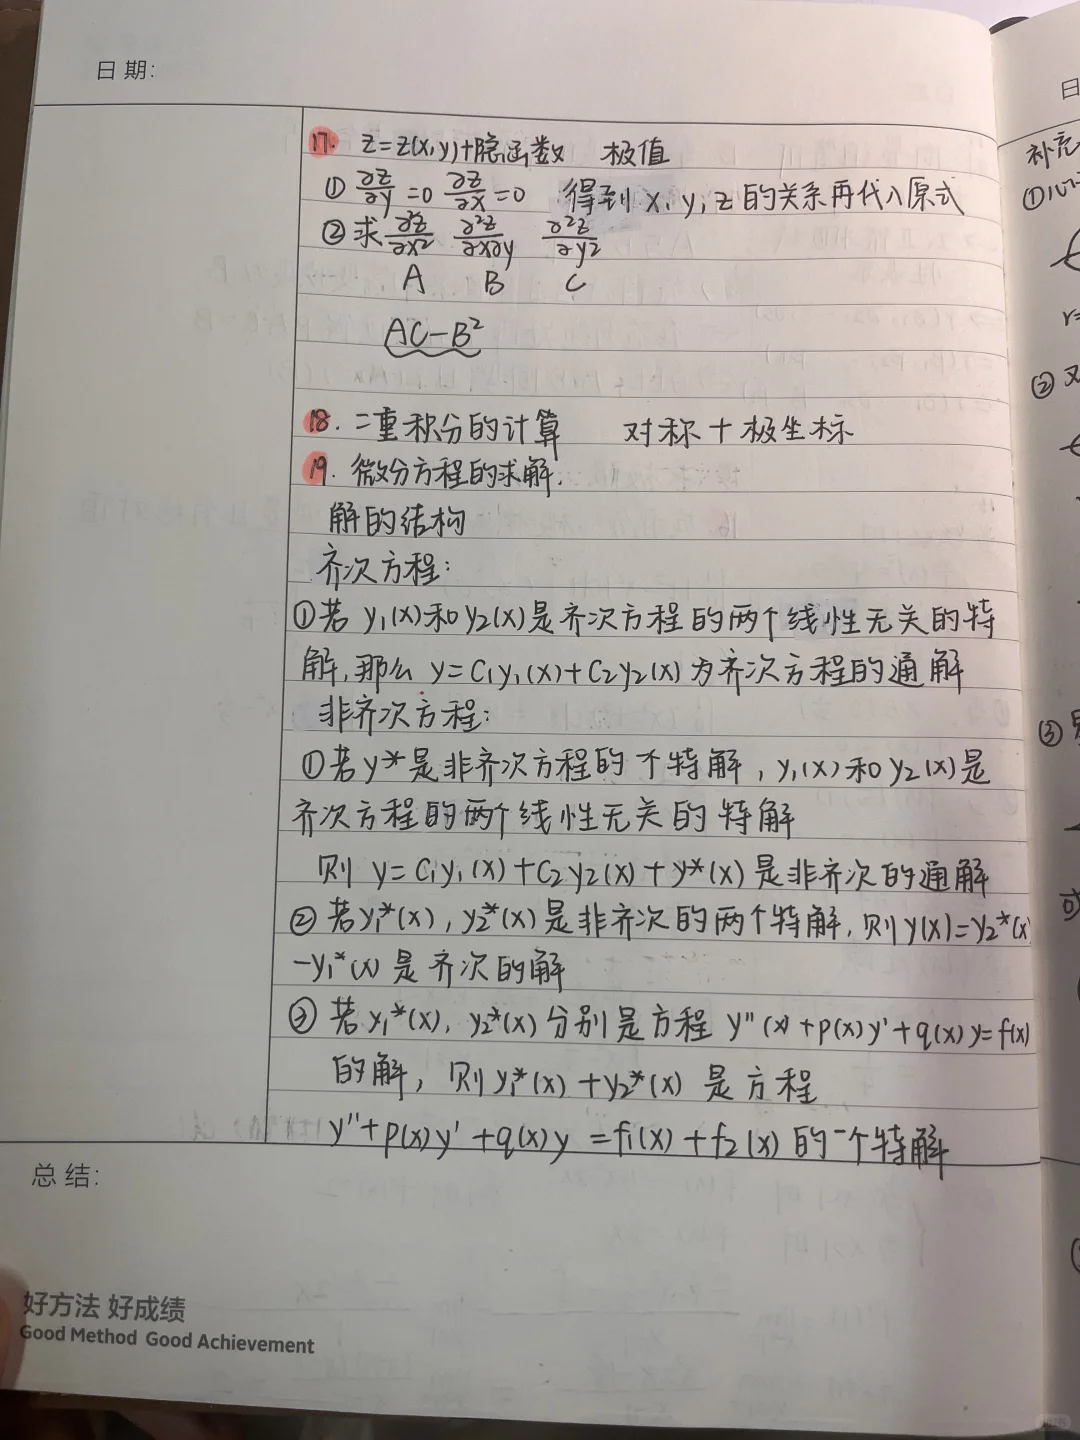 日 期:
17. z=z(x,y)+隐函数 极值
① ∂z/∂y=0 ∂z/∂x=0 得到x,y,z的关系再代入原式
② 求 ∂²z/∂x² ∂²z/∂x∂y ∂²z/∂y²
A B C
AC-B²
18. 二重积分的计算 对称+极坐标
19. 微分方程的求解.
解的结构
齐次方程:
①若 y₁(x)和y₂(x)是齐次方程的两个线性无关的特
解,那么 y=C₁y₁(x)+C₂y₂(x)为齐次方程的通解
非齐次方程:
①若y*是非齐次方程的个特解,y₁(x)和y₂(x)是
齐次方程的两个线性无关的特解
则 y=C₁y₁(x)+C₂y₂(x)+y*(x)是非齐次的通解
②若y₁*(x),y₂*(x)是非齐次的两个特解,则y(x)=y₂*(x)
-y₁*(x)是齐次的解
③若y₁*(x),y₂*(x)分别是方程 y''(x)+p(x)y'+q(x)y=f(x)
的解,则y₁*(x)+y₂*(x)是方程
y''+p(x)y'+q(x)y=f₁(x)+f₂(x)的一个特解
总 结:
好方法 好成绩
Good Method Good Achievement
日
补充
①
②
③